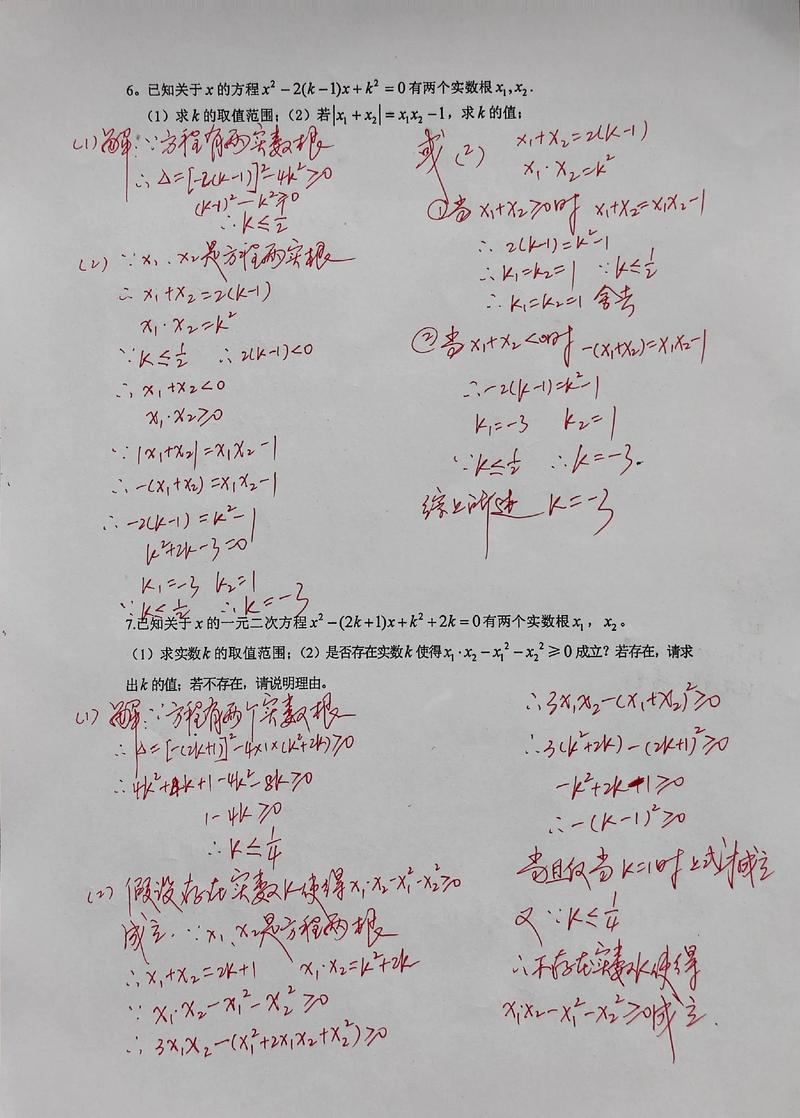 6。已知关于x的方程x²-2(k-1)x+k²=0有两个实数根x₁,x₂.
(1)求k的取值范围;(2)若|x₁+x₂|=x₁x₂-1,求k的值;
(1)解:∵方程有两实数根
∴Δ=[-2(k-1)]²-4k²≥0
(k-1)²-k²≥0
∴k≤1/2
(2)∵x₁、x₂是方程两实根
∴x₁+x₂=2(k-1)
x₁·x₂=k²
∵k≤1/2 ∴2(k-1)<0
∴x₁+x₂<0
x₁·x₂≥0
∵|x₁+x₂|=x₁x₂-1
∴-(x₁+x₂)=x₁x₂-1
∴-2(k-1)=k²-1
k²+2k-3=0
k₁=-3 k₂=1
∵k≤1/2 ∴k=-3
或(2) x₁+x₂=2(k-1)
x₁·x₂=k²
①当x₁+x₂≥0时 x₁+x₂=x₁x₂-1
∴2(k-1)=k²-1
∴k₁=k₂=1 ∵k≤1/2
∴k₁=k₂=1舍去
②当x₁+x₂<0时 -(x₁+x₂)=x₁x₂-1
∴-2(k-1)=k²-1
k₁=-3 k₂=1
∵k≤1/2 ∴k=-3.
综上所述 k=-3
7.已知关于x的一元二次方程x²-(2k+1)x+k²+2k=0有两个实数根x₁,x₂。
(1)求实数k的取值范围;(2)是否存在实数k使得x₁·x₂-x₁²-x₂²≥0成立?若存在,请求
出k的值;若不存在,请说明理由。
(1)解:∵方程有两个实数根
∴Δ=[-(2k+1)]²-4×1×(k²+2k)≥0
∴4k²+4k+1-4k²-8k≥0
1-4k≥0
∴k≤1/4
(2)假设存在实数k使得x₁·x₂-x₁²-x₂²≥0
成立.∵x₁、x₂是方程两根
∴x₁+x₂=2k+1 x₁·x₂=k²+2k
∵x₁·x₂-x₁²-x₂²≥0
∴3x₁x₂-(x₁²+2x₁x₂+x₂²)≥0
∴3x₁x₂-(x₁+x₂)²≥0
∴3(k²+2k)-(2k+1)²≥0
-k²+2k-1≥0
∴-(k-1)²≥0
当且仅当k=1时上式成立
又∵k≤1/4
∴不存在实数k使得
x₁·x₂-x₁²-x₂²≥0成立.